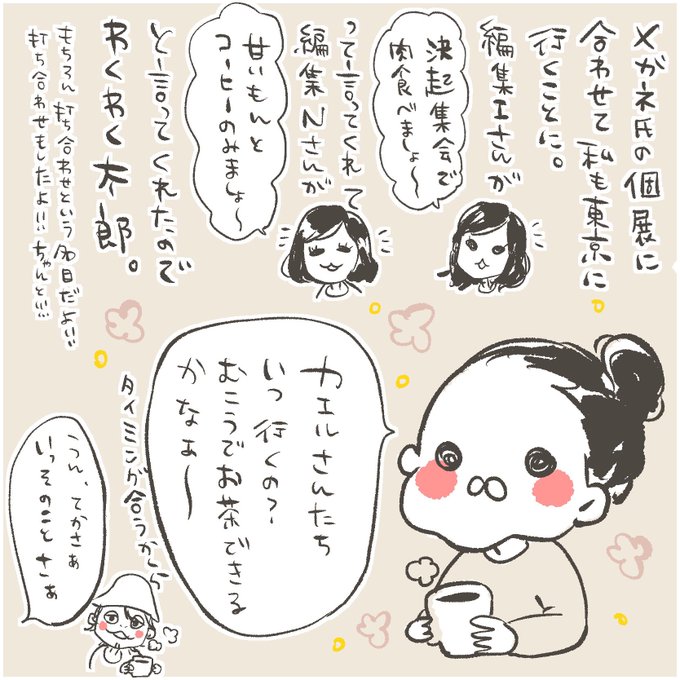 メガネ氏の個展に
合わせて私も東京に
行くことに。
編集Iさんが
決起集会で
肉食べましょ〜
って言ってくれて
編集Nさんが
甘いもんと
コーヒーのみましょ〜
と言ってくれたので
わくわく太郎。
もちろん打ち合わせという名目だよ!!
打ち合わせもしたよ!!!ちゃんと!!!
カエルさんたち
いつ行くの?
むこうでお茶できる
かなぁ〜
タイミングが合うかしら
うん、てかさぁ
いっそのことさぁ